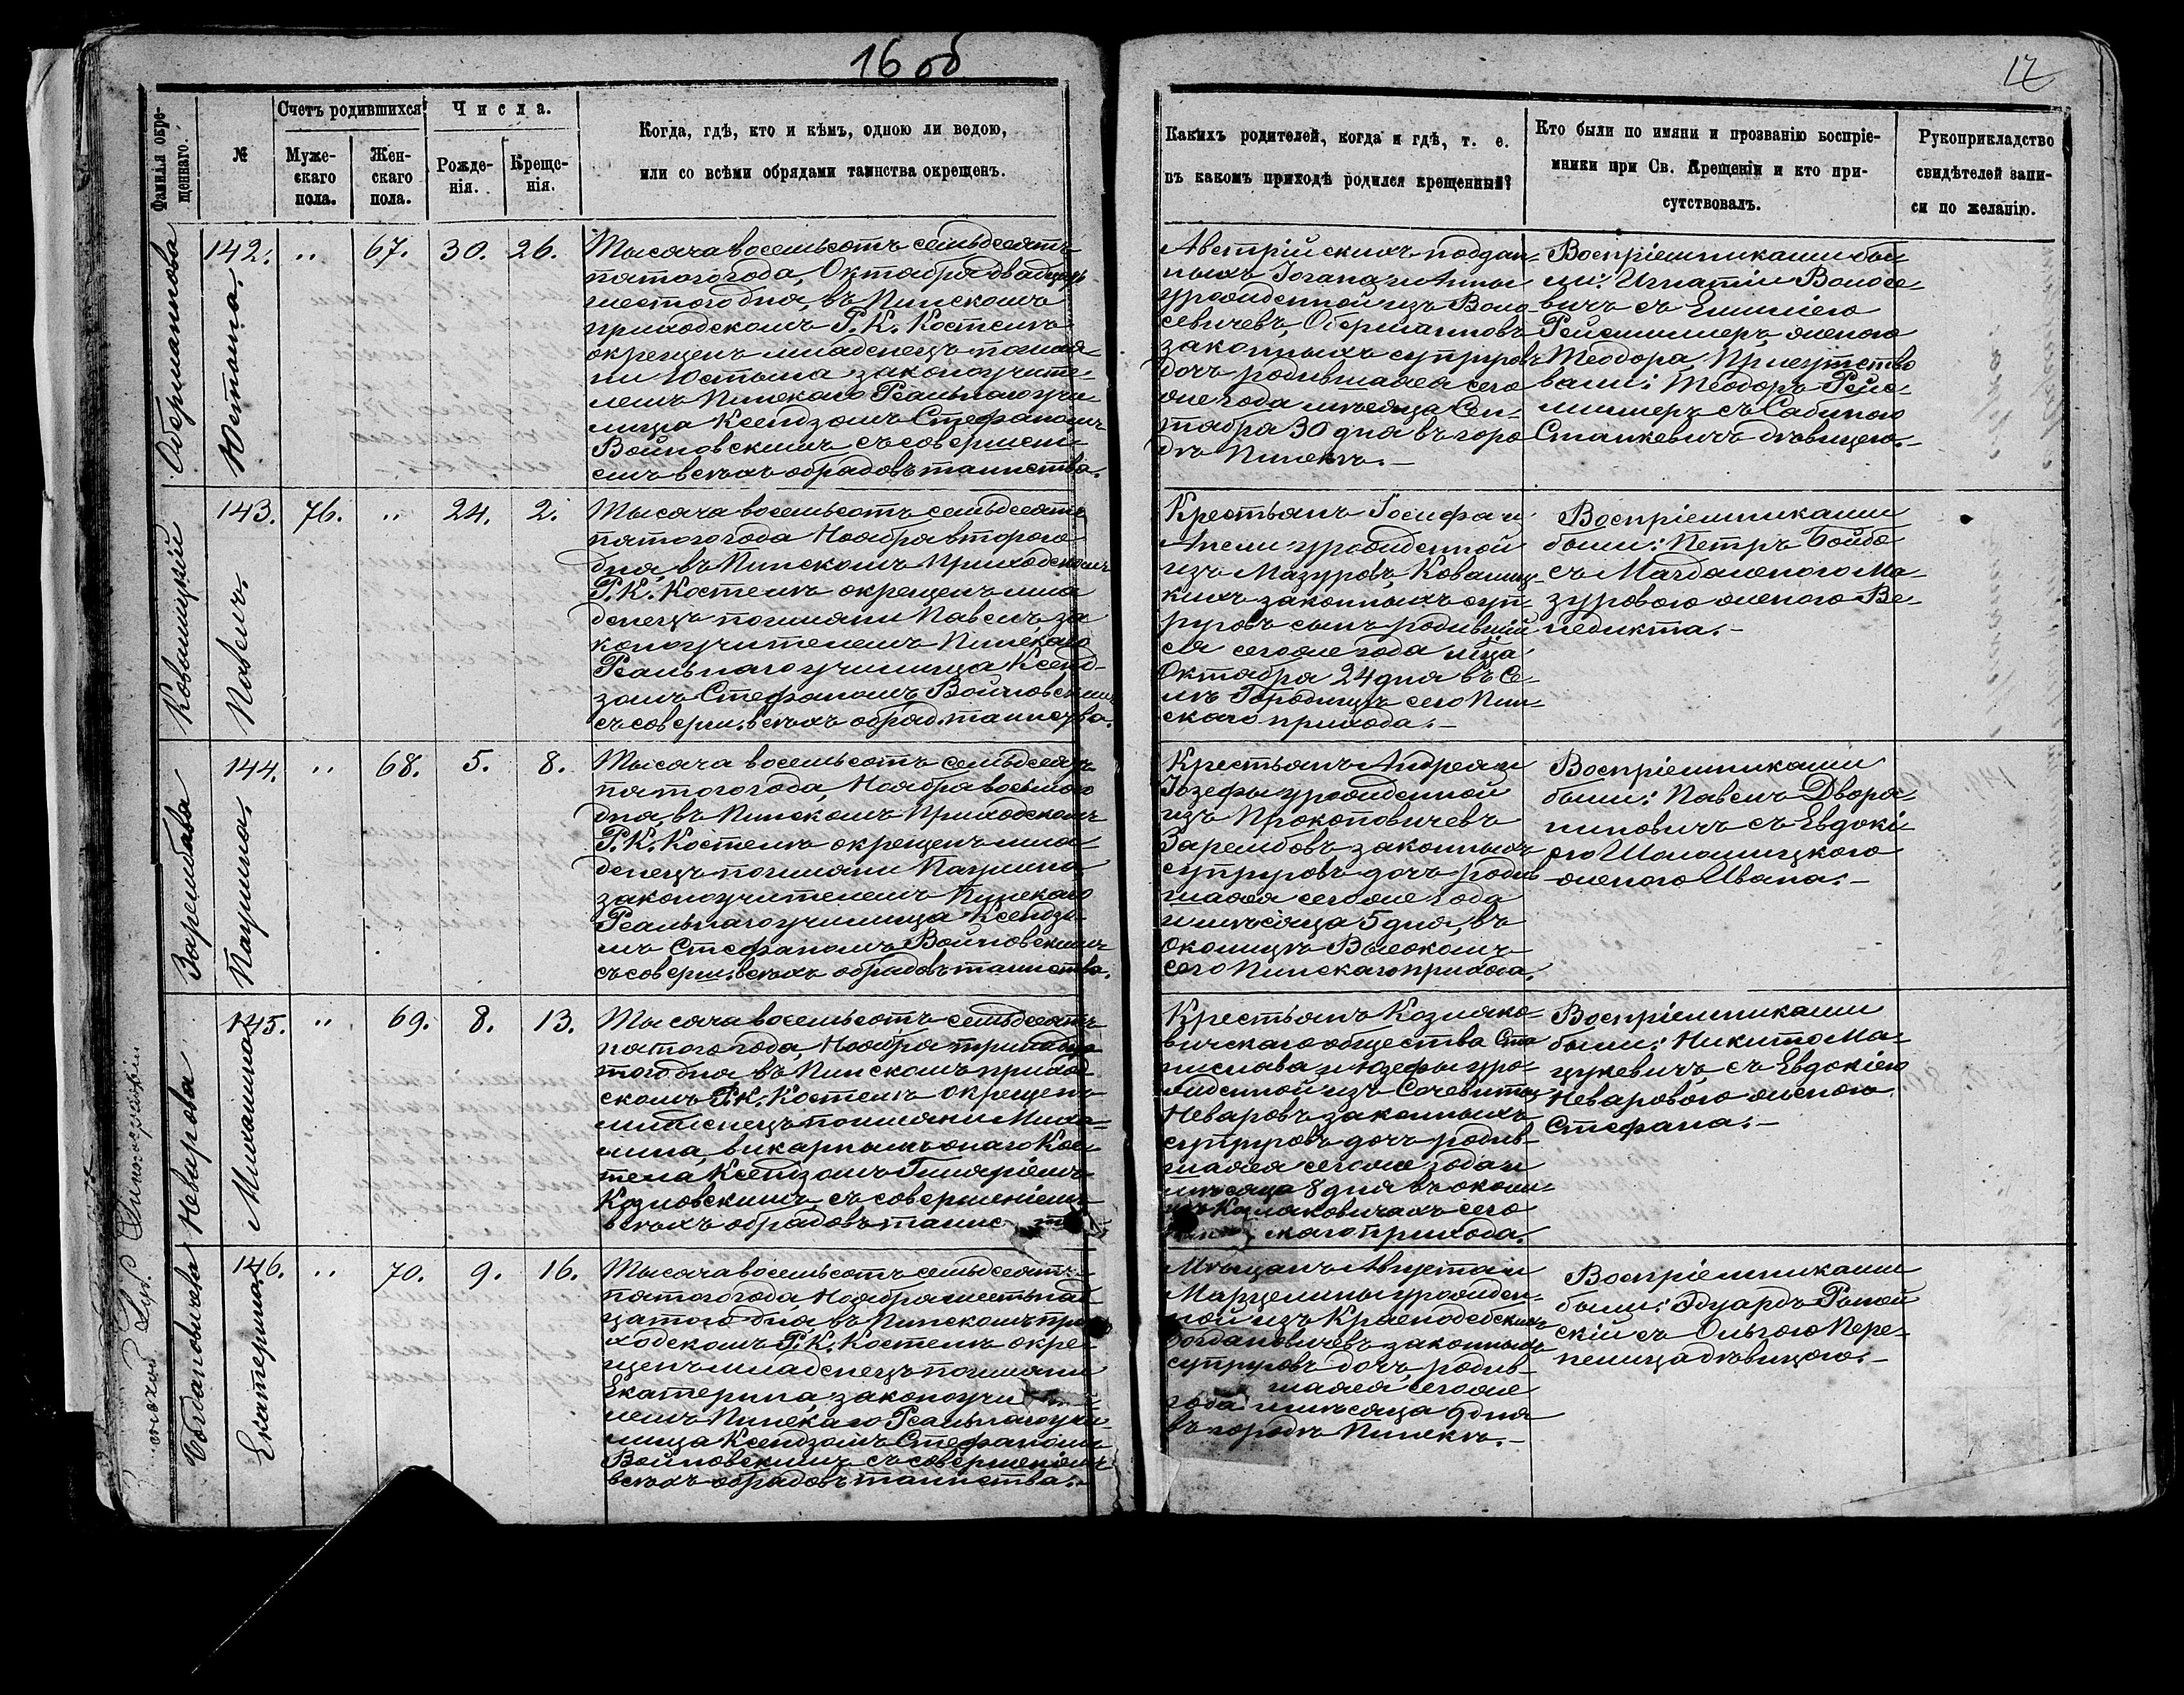 16 об
17
Фамилія окре-
щеннаго.
№
Счетъ родившихся
Муже-
скаго
пола.
Жен-
скаго
пола.
Числа.
Рожде-
нія.
Креще-
нія.
Когда, гдѣ, кто и кѣмъ, одною ли водою,
или со всѣми обрядами таинства окрещенъ.
Какихъ родителей, когда и гдѣ, т. е.
въ какомъ приходѣ родился крещенный?
Кто были по имяни и прозванію воспріе-
мники при Св. Крещеніи и кто при-
сутствовалъ.
Рукоприкладство
свидѣтелей запи-
си по желанію.
Оберманнова
Юстына.
142.
"
67.
30.
26.
Тысяча восемьсотъ семьдесятъ
пятого года, Октября двадцать
шестого дня, въ Пинскомъ
приходскомъ Р. К. Костелѣ
окрещенъ младенецъ по имя-
ни Юстына законоучите-
лемъ Пинскаго Реальнаго учи
лища Ксендзомъ Стефаномъ
Войновскимъ съ совершені-
емъ всѣхъ обрядовъ таинства.
Австрійскихъ поддан-
ныхъ Іогана и Анны
урожденной изъ Воло-
севичевъ, Обермановъ
законныхъ супруговъ
дочь родившаяся сего
же года мѣсяца Сен-
тября 30 дня въ горо
дѣ Пинскѣ.-
Воспріемниками бы-
ли: Игнатій Волосе-
вичъ съ Емиліею
Рейсмиллеръ, женою
Теодора, Присутство
вали: Теодоръ Рейс-
миллеръ съ Сабиною
Станкевичъ дѣвицею.-
Ковалицкій
Павелъ.
143.
76.
"
24.
2.
Тысяча восемьсотъ семьдесятъ
пятого года Ноября второго
дня, въ Пинскомъ Приходскомъ
Р. К. Костелѣ окрещенъ мла
денецъ по имяни Павелъ, за
коноучителемъ Пинскаго
Реальнаго училища Ксенд-
зомъ Стефаномъ Войновскимъ
съ соверш. всѣхъ обряд. таинства.
Крестьянъ Іосифа и
Анели урожденной
изъ Мазуровъ Ковалиц-
кихъ законныхъ суп-
руговъ сынъ родивший
ся сего же года м҃ца
Октября 24 дня въ Се-
лѣ Городищѣ сего Пин-
скаго прихода.-
Воспріемниками
были: Петръ Бойдо
съ Магдаленою Ма-
зуровою женою Ве-
недикта.-
Зарембова
Паулина.
144.
"
68.
5.
8.
Тысяча восемьсотъ семьдесятъ
пятого года, Ноября восьмого
дня, въ Пинскомъ Приходскомъ
Р. К. Костелѣ окрещенъ мла-
денецъ по имяни Паулина
законоучителемъ Пинскаго
Реальнаго училища Ксендзо-
мъ Стефаномъ Войновскимъ
съ соверш. всѣхъ обрядовъ таинства.
Крестьянъ Андрея и
Іозефы урожденной
изъ Прокоповичевъ
Зарембовъ законныхъ
супруговъ дочь родив
шаяся сего же года
и мѣсяца 5 дня, въ
Околицѣ Высокомъ
сего Пинскаго прихода.
Воспріемниками
были: Павелъ Дворя-
ниновичъ съ Евдокі-
ею Шоломицкою
женою Ивана.-
Неварова
Михалина.
145.
"
69.
8.
13.
Тысяча восемьсотъ семьдесятъ
пятого года, Ноября тринадца
того дня въ Пинскомъ приход
скомъ Р.К. Костелѣ окрещенъ
младенецъ по имяни Миха-
лина, викарнымъ онаго Кос-
тела Ксендзомъ Гиляріемъ
Козловскимъ съ совершеніемъ
всѣхъ обрядовъ таинс
Крестьянъ Козляко-
вичскаго общества Ста
нислава и Юзефы уро-
жденной изъ Сачевитъ
Неваровъ законныхъ
супруговъ дочь родив-
шаяся сего же года и
мѣсяца 8 дня въ околи-
цѣ Козляковичахъ сего
скаго прихода.
Воспріемниками
были: Никита Ма-
цукевичъ, съ Евдокіею
Неваровою женою
Стефана.-
Богдановичева
Екатерина.
146.
"
70.
9.
16.
Тысяча восемьсотъ семьдесятъ
пятого года, Ноября шестнад
цатого дня, въ Пинскомъ при
ходскомъ Р.К. Костелѣ окре-
щенъ младенецъ по имяни
Екатерина, законоучи
лемъ Пинскаго Реальнаго учи
лища Ксендзомъ Стефаномъ
Войновскимъ съ совершеніемъ
всѣхъ обрядовъ таинства.-
Мѣщанъ Августа и
Марцелины урожден-
ной изъ Краснодебскихъ
Богдановичевъ законныхъ
супруговъ дочь, родив-
шаяся сего же
года мѣсяца 9 дня
въ городѣ Пинскѣ.-
Воспріемниками
были: Эдуардъ Ромей
скій съ Ольгою Пере-
пелица дѣвицею.-